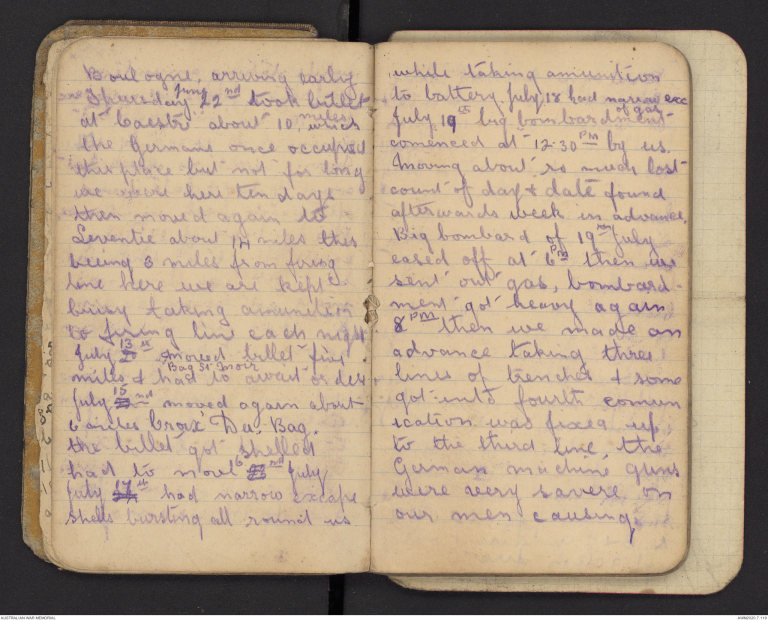 Boulogne, arriving early
Thursday June 22nd took billet
at Caestre about 10 miles, which
the Germans once occupied
this place but not for long
we were here ten days
then moved again to
Leventie about 14 miles this
being 3 miles from firing
line here we are kept
buisy taking amunition
to firing line each night
July 13th moved billet five
Bag St Moir
miles & had to await orders
July 15 moved again about
6 miles Croix Du. Bag.
the billet got shelled
had to move 16 July
July 17th had narrow excape
shells bursting all round us
while taking amunition
to battery July 18 had narrow exc
of gas
July 19th big bombardment
comenced at 12.30 PM by us.
Moving about so much lost
count of day & date found
afterwards week in advance.
Big bombard of 19th July
eased off at 6 PM then we
sent out gas, bombard-
ment got heavy again
8 PM then we made an
advance taking three
lines of trenches & some
got into fourth comun
ication was fixed up,
to the third line, the
German machine guns
were very savere on
our men causing
AUSTRALIAN WAR MEMORIAL